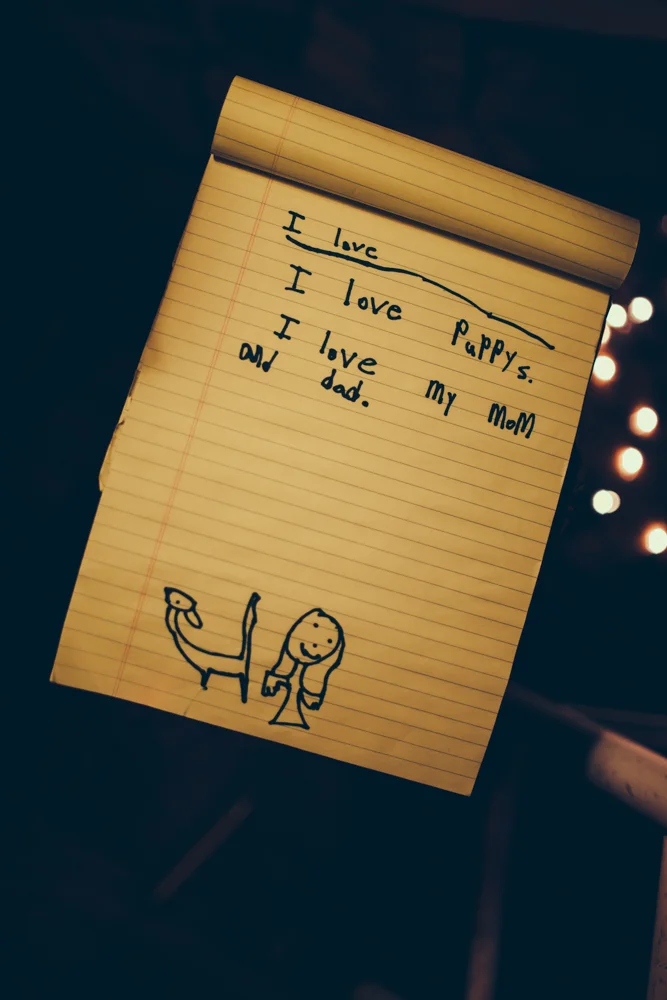 I love
I love puppys.
I love my MoM
and dad.